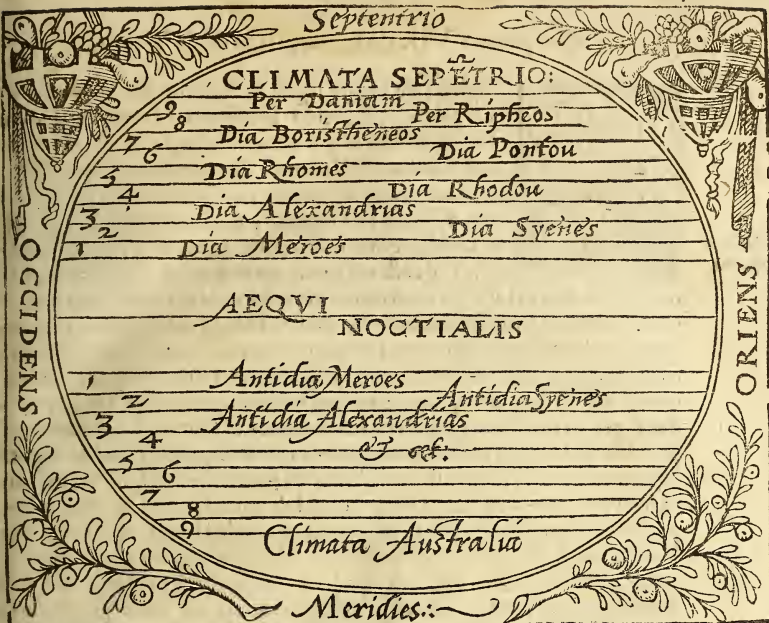 Septentrio
CLIMATA SEPĒTRIO:
9 Per Daniam
8 Per Ripheos
7 Dia Boristheneos
6 Dia Pontou
5 Dia Rhomes
4 Dia Rhodou
3 Dia Alexandrias
2 Dia Syenes
1 Dia Meroes
OCCIDENS
ORIENS
AEQVI
NOCTIALIS
1 Antidia Meroes
2 Antidia Syenes
3 Antidia Alexandrias
4
5
6
7
8
9
Climata Australia
Meridies.: